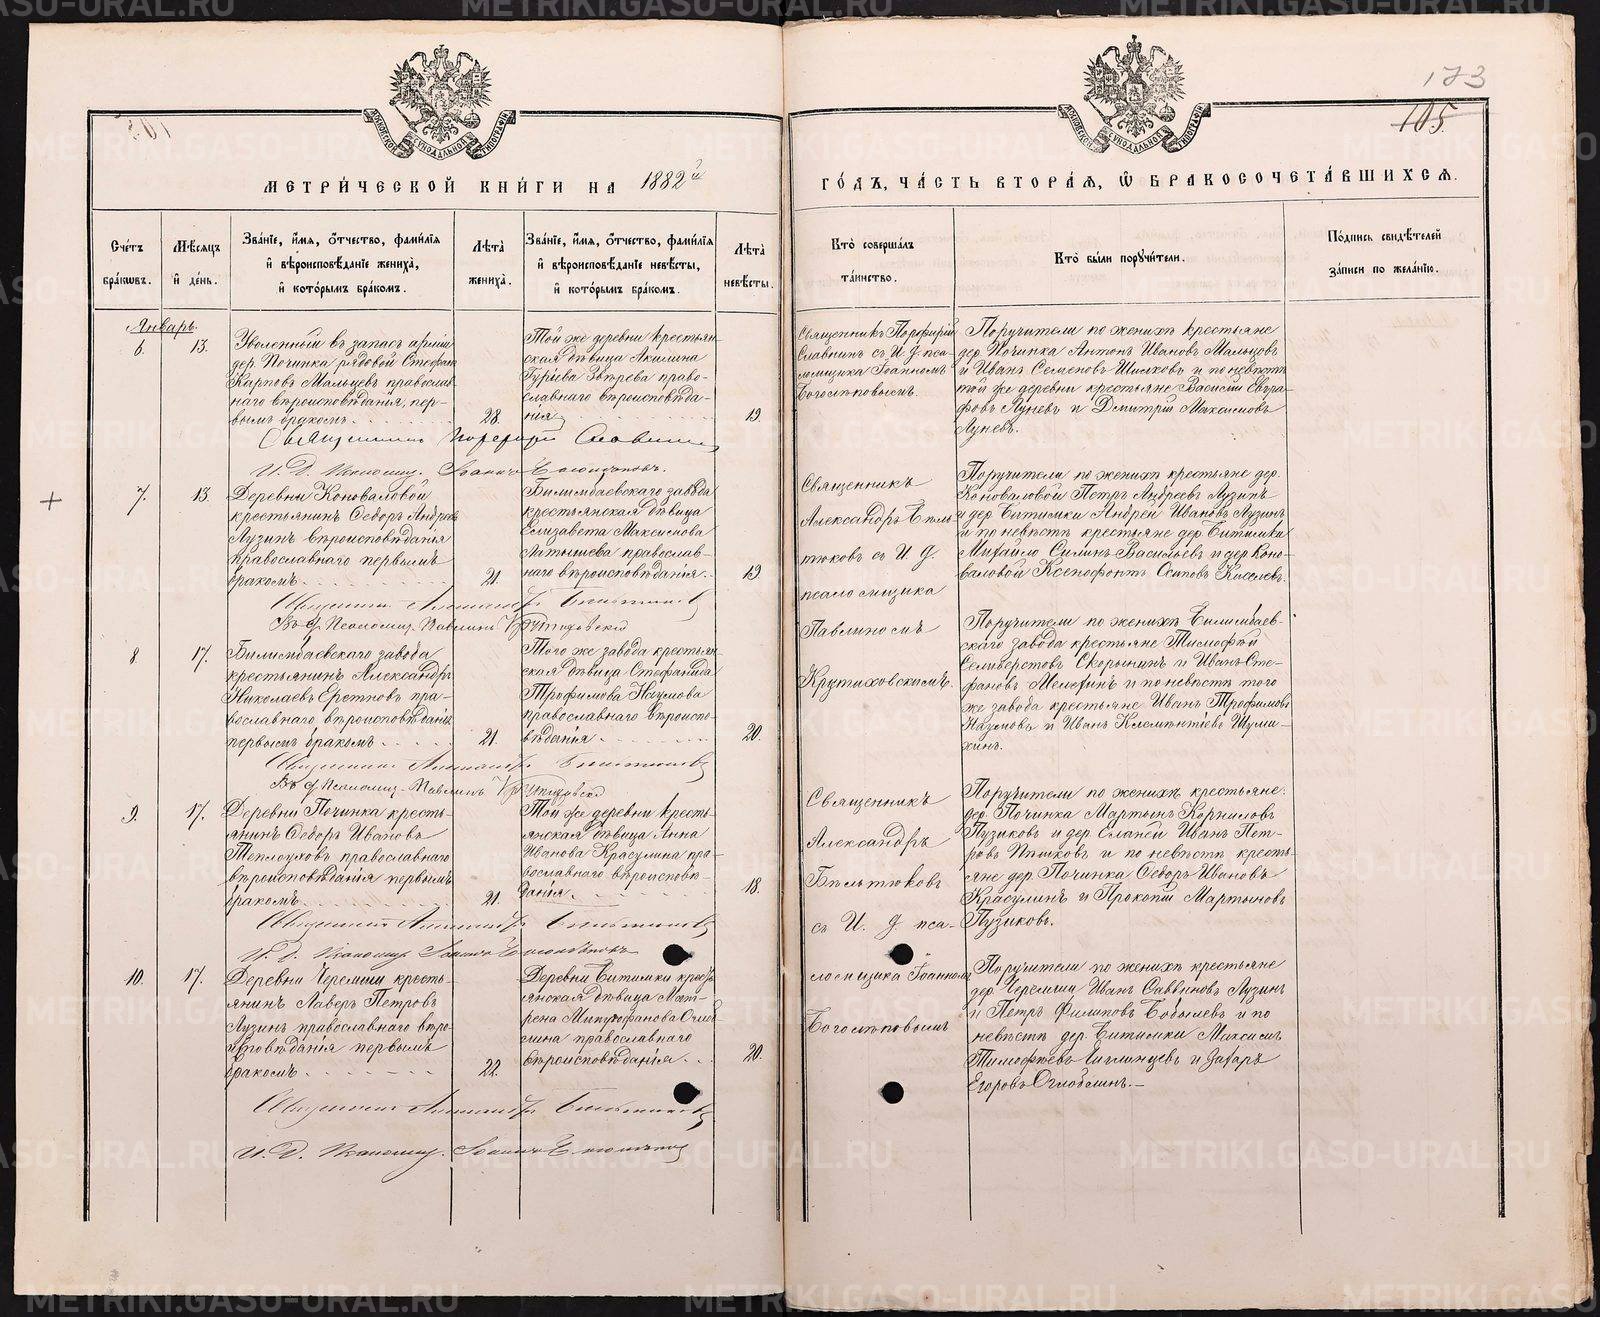 173
105.
МЕТРИЧЕСКОЙ КНИГИ НА 1882й
ГОДЪ, ЧАСТЬ ВТОРАЯ, Ѡ БРАКОСОЧЕТАВШИХСЯ.
Счетъ браковъ.
Мѣсяцъ и день.
Званіе, имя, отчество, фамилія
и вѣроисповѣданіе жениха,
и которымъ бракомъ.
Лѣта жениха.
Званіе, имя, отчество, фамилія
и вѣроисповѣданіе невѣсты,
и которымъ бракомъ.
Лѣта невѣсты.
Кто совершалъ
таинство.
Кто были поручители.
Подпись свидѣтелей
записи по желанію.
Январь.
6. 13.
Уволенный въ запасъ арміи
дер. Починка рядовой Стефанъ
Карповъ Мальцевъ православ-
наго вѣроисповѣданія, пер-
вымъ бракомъ
28.
Той же деревни крестьян-
ская дѣвица Акилина
Гуріева Звѣрева право-
славнаго вѣроисповѣда-
нія
19.
Священникъ Порфирій
Славнинъ съ И. д. пса-
ломщика Іоанномъ
Боголѣповымъ.
Поручители по женихѣ крестьяне
дер. Починка Антонъ Ивановъ Мальцовъ
и Иванъ Семеновъ Шилковъ и по невѣстѣ
той же деревни крестьяне Василій Евгра-
фовъ Луневъ и Дмитрій Максимовъ
Луневъ.
Священникъ Порфирій Славнинъ
И. Д. Псаломщ. Іоаннъ Боголѣповъ.
7. 13.
Деревни Коноваловой
крестьянинъ Ѳедоръ Андреевъ
Лузинъ вѣроисповѣданія
православнаго первымъ
бракомъ
21.
Билимбаевскаго завода
крестьянская дѣвица
Елизавета Максимова
Латышева православ-
наго вѣроисповѣданія.
19.
Священникъ
Александръ Бѣль-
тюковъ съ И. д.
псаломщика
Павлиномъ
Крутиховскимъ.
Поручители по женихѣ крестьяне дер.
Коноваловой Петръ Андреевъ Лузинъ
и дер. Битимки Андрей Ивановъ Лузинъ
и по невѣстѣ крестьяне дер. Битимки
Михайло Силинъ Васильевъ и дер. Коно-
валовой Ксенофонтъ Осиповъ Киселевъ.
Священникъ Александръ Бѣльтюковъ
Въ д. Псаломщ. Павлинъ Крутиховскій
8 17.
Билимбаевскаго завода
крестьянинъ Александръ
Николаевъ Еретновъ пра-
вославнаго вѣроисповѣданія
первымъ бракомъ
21.
Того же завода крестьян-
ская дѣвица Стефанида
Трофимова Наумова
православнаго вѣроиспо-
вѣданія
20.
Поручители по женихѣ Билимбаев-
скаго завода крестьяне Тимофѣй
Селиверстовъ Скорынинъ и Иванъ Сте-
фановъ Мелехинъ и по невѣстѣ того
же завода крестьяне Иванъ Трофимовъ
Наумовъ и Иванъ Клементіевъ Шуми-
хинъ.
Священникъ Александръ Бѣльтюковъ
Въ д. Псаломщ. Павлинъ Крутиховскій
9. 17.
Деревни Починка кресть-
янинъ Ѳедоръ Ивановъ
Теплоуховъ православнаго
вѣроисповѣданія первымъ
бракомъ
21.
Той же деревни кресть-
янская дѣвица Анна
Иванова Красулина пра-
вославнаго вѣроисповѣ-
данія.
18.
Священникъ
Александръ
Бѣльтюковъ
съ И. д. пса-
ломщика Іоанномъ
Боголѣповымъ
Поручители по женихѣ крестьяне:
дер. Починка Мартынъ Корниловъ
Пузиковъ и дер. Иванъ Пет-
ровъ и по невѣстѣ кресть-
яне дер. Починка Ѳедоръ Ивановъ
Красулинъ и Прокопій Мартыновъ
Пузиковъ.
Священникъ Александръ Бѣльтюковъ
И. Д. Псаломщ. Іоаннъ Боголѣповъ
10. 17.
Деревни Черемши кресть-
янинъ Лаверъ Петровъ
Лузинъ православнаго вѣро-
исповѣданія первымъ
бракомъ
22.
Деревни Битимки кресть-
янская дѣвица Мат-
рена Митрофанова Огло-
блина православнаго
вѣроисповѣданія
20.
Поручители по женихѣ крестьяне
дер. Черемши Иванъ Саввиновъ Лузинъ
и Петръ Филиповъ Бобылевъ и по
невѣстѣ дер. Битимки Максимъ
Тимофѣевъ Чиглинцевъ и Захаръ
Егоровъ Оглоблинъ.
Священникъ Александръ Бѣльтюковъ
И. Д. Псаломщ. Іоаннъ Боголѣповъ
METRIKI.GASO-URAL.RU